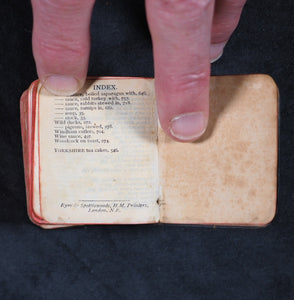 INDEX.
— sauce, boiled asparagus with, 646.
— sauce, cold turkey with, 253.
— sauce, rabbits stewed in,
— sauce, turnips in, 680.
— soup, 35.
— stock, 33.
Wild ducks, 272.
— pigeons, stewed, 278.
Windham cutlets, 704.
Wine sauce, 492.
Woodcock on toast, 274.
YORKSHIRE tea cakes, 546.
Eyre & Spottiswoode, H.M. Printers,
London, N.E.